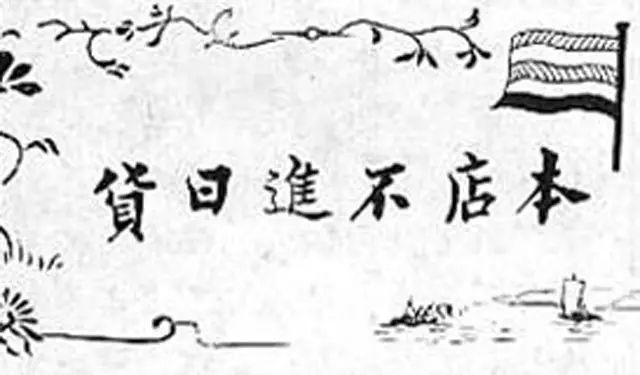 本店不進日貨